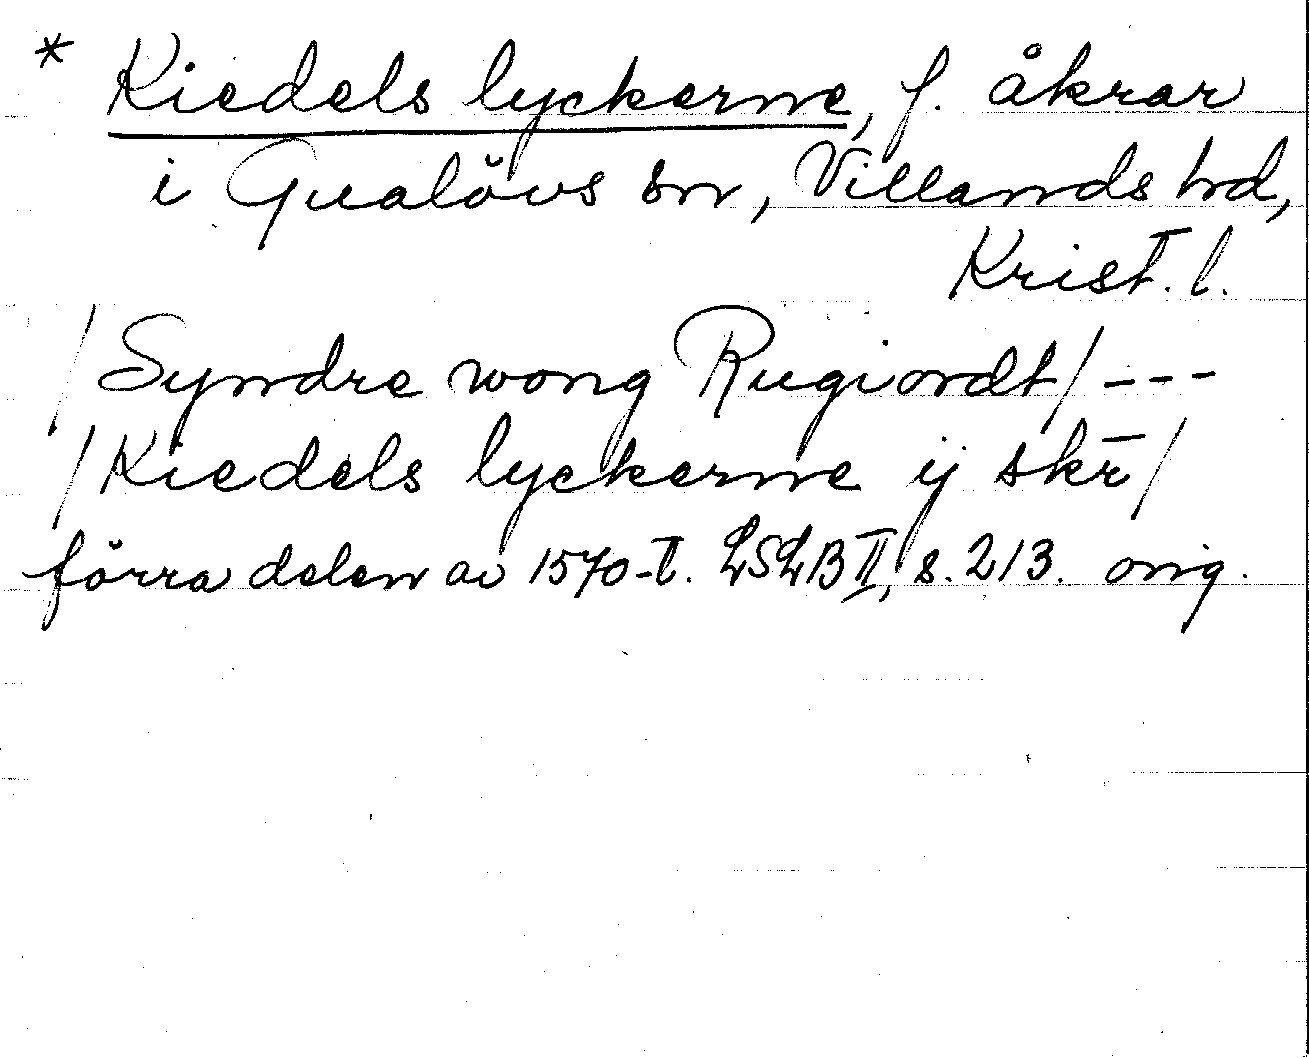 * Kiedels lyckerne, f. åkrar
i Gualövs sn, Villands hd,
Krist. l.
/Syndre wong Rugiordt/ ---
/Kiedels lyckerne ij skr̄/
förra delen av 1570-t. LSLB II, s. 213. orig.